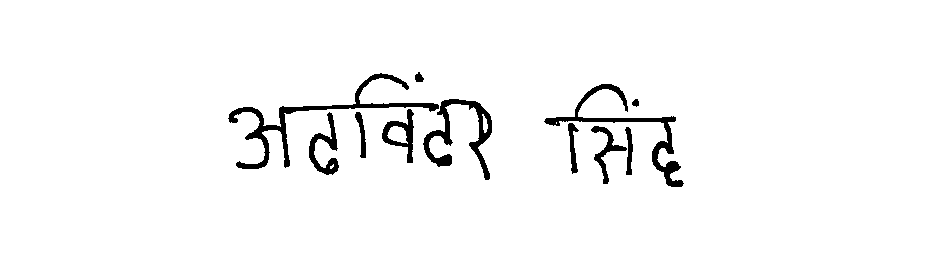 अदविंदर सिंह